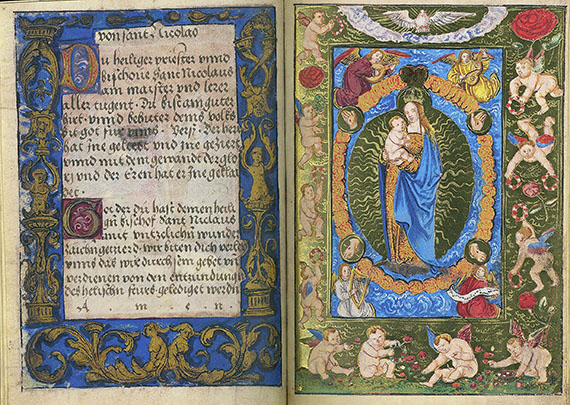 von sant Nicolao
Du heiliger priester vnnd
bischoue Sant Nicolaus
ain maister vnd lerer
aller tugent . Du bist ain guter
hirt . vnnd behüter deins volks
bit got für vnns . Vers . Der herr
hat jne geliebt vnnd jne geziert
vnnd mit dem gewandt der glo
rj vnd der Eren hat er jne
det .
Got der du hast dem heili
bischof Sant Niclaus
mit wunder
zaichn geziert . wir biten dich
vnns das wir durch sein gebet vn
verdienen von den entzündung
des hellischn feurs geledigt werdn
A m e n